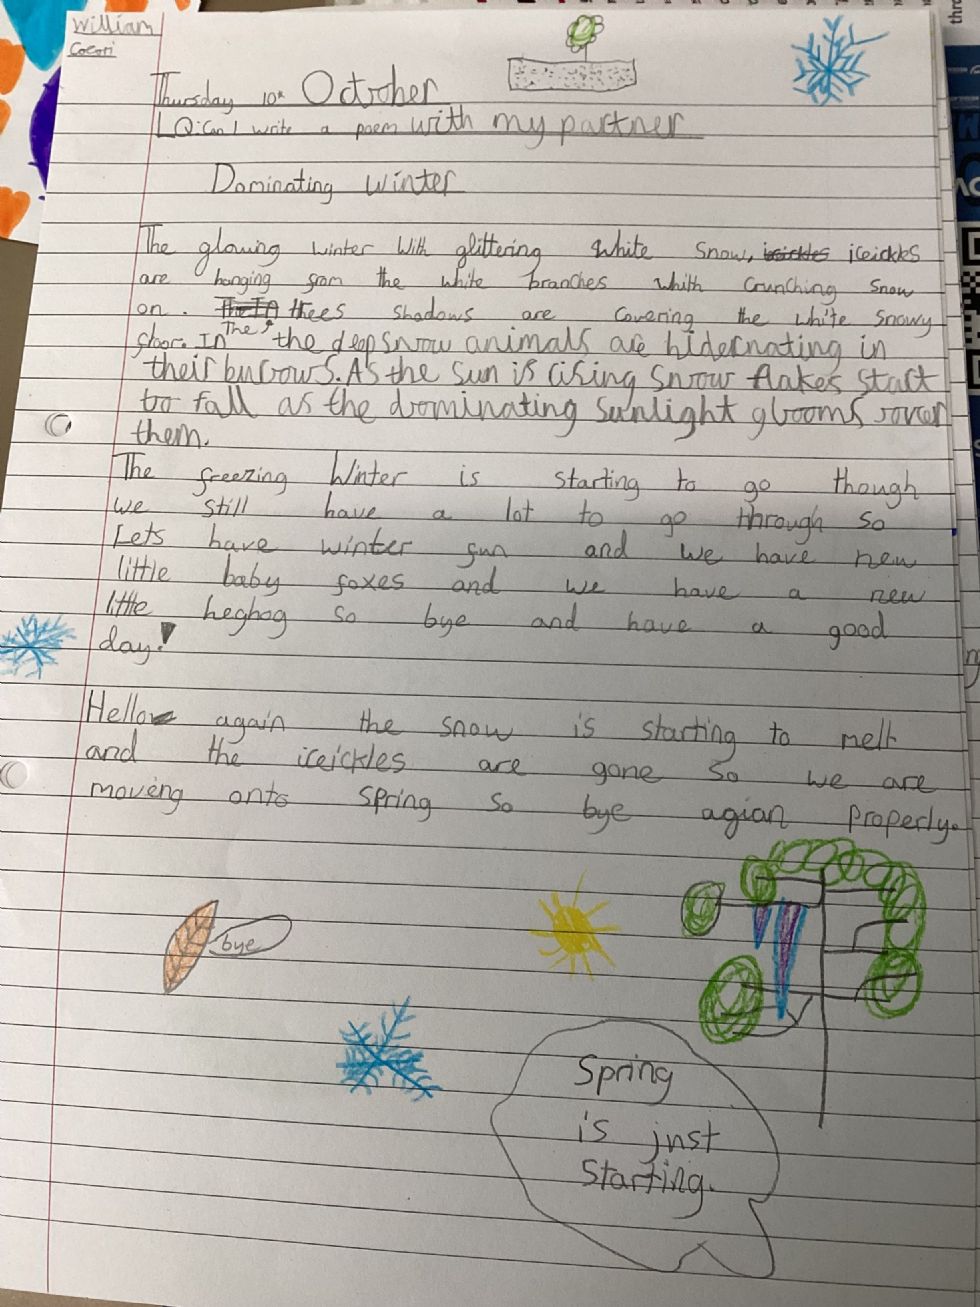 William
Cocori
Thursday 10th October
LQ: Can I write a poem with my partner
Dominating winter
The glowing winter with glittering white snow, iceickles
are hanging from the white branches whith crunching snow
on. The thees shadows are covering the white snowy
floor. In the deep snow animals are hidernating in
their burrows. As the sun is rising snow flakes start
to fall as the dominating sunlight glooms over
them.
The freezing Winter is starting to go though
we still have a lot to go through so
Lets have winter fun and we have new
little baby foxes and we have a new
little heghog so bye and have a good
day!
Hello again the snow is starting to melt
and the iceickles are gone so we are
moveing onto spring so bye agian properly.
bye
Spring
is just
starting.